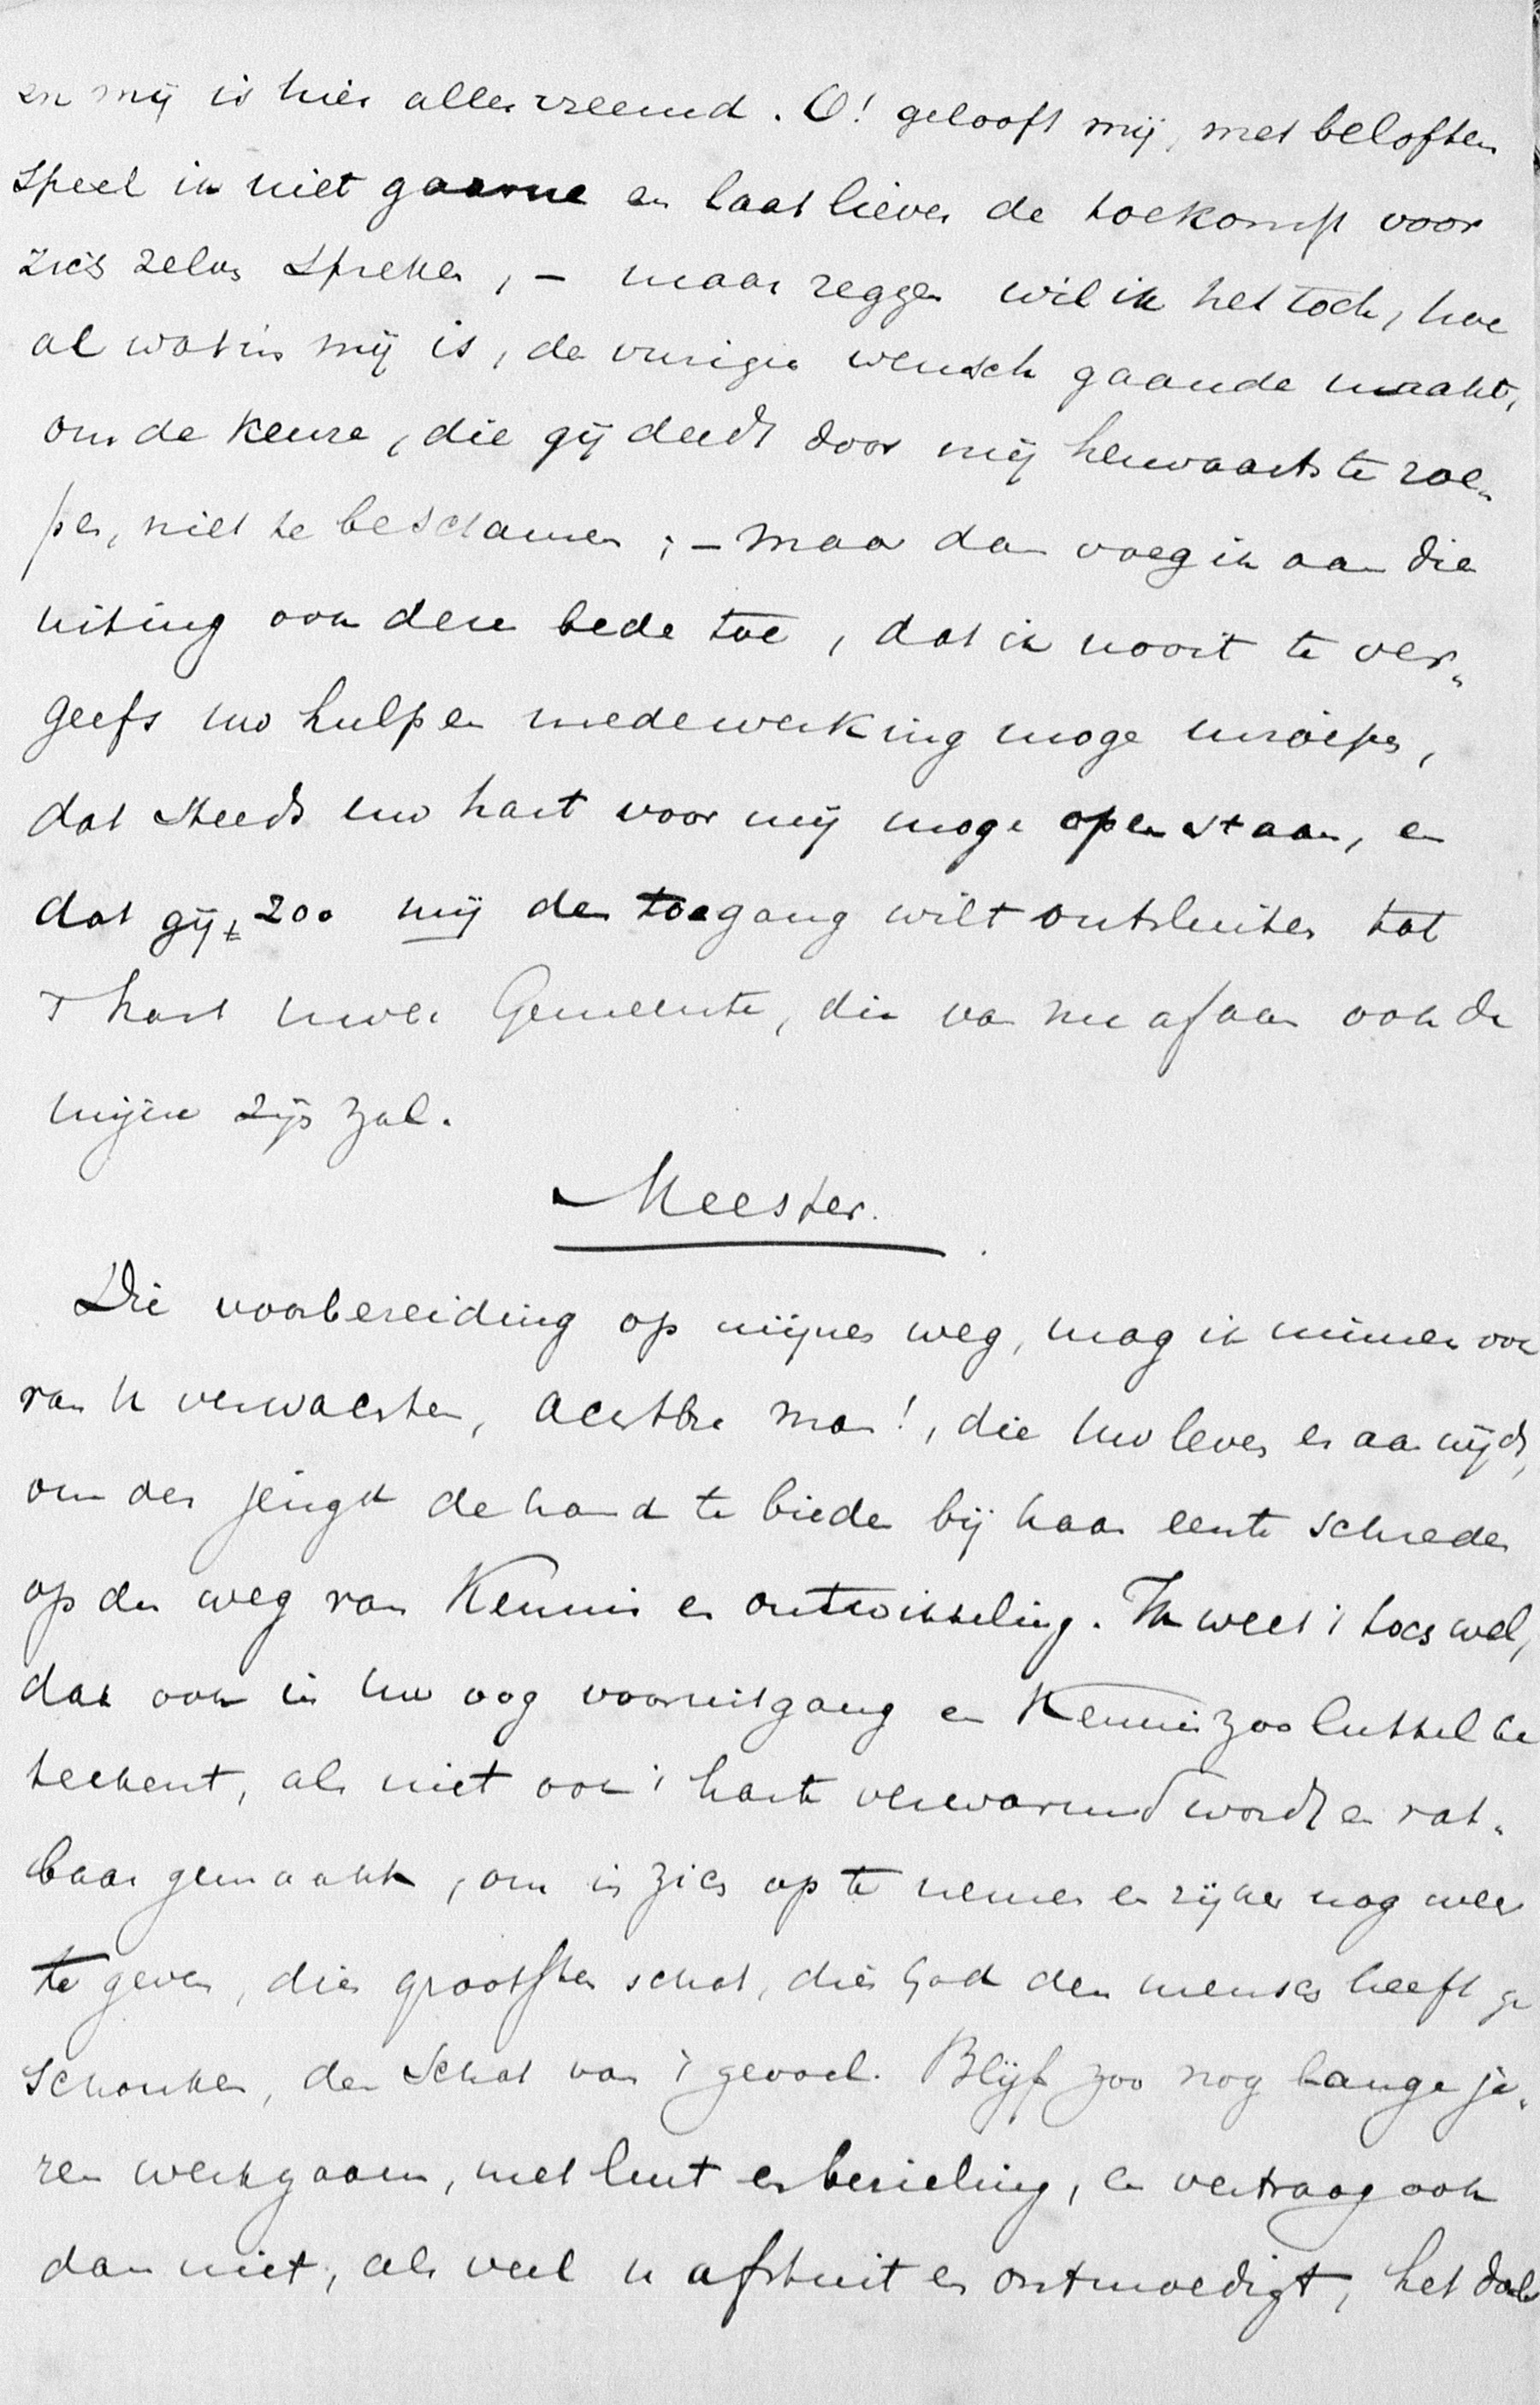 en mij is hier alles vreemd. O! gelooft mij, met beloften
speel ik niet gaarne en laat liever de toekomst voor
zich zelve spreken, – maar zeggen wil ik het toch, hoe
al wat in mij is, de vurigen wensch gaande maakt,
om de keuze, die gij deedt door mij herwaarts te roe„
pen, niet te beschamen; – maar dan voeg ik aan die
uiting ook deze bede toe, dat ik nooit te ver„
geefs uw hulp en medewerking moge inroepen,
dat steeds uw hart voor mij moge openstaan, en
dat gij, zoo mij den toegang wilt ontsluiten tot
't hart uwer Gemeente, die van nu af aan ook de
mijne zijn zal.
Meester.
Die voorbereiding op mijnen weg, mag ik immers ook
van U verwachten, achtbre man!, die Uw leven er aan wijdt,
om der jeugd de hand te bieden bij haar eerste schreden
op den weg van Kennis en ontwikkeling. Ik weet 't toch wel,
dat ook in Uw oog vooruitgang en Kennis zoo luttel be
teekent, als niet ook 't harte verwarmd wordt en vat„
baar gemaakt, om in zich op te nemen en rijker nog weer
te geven, dien grootsten schat, dien God den mensch heeft ge
schonken, den Schat van 't gevoel. Blijf zoo nog lange ja„
ren werkzaam, met lust en bezieling, en vertraag ook
dan niet, als veel u afstuit en ontmoedigt, het doel